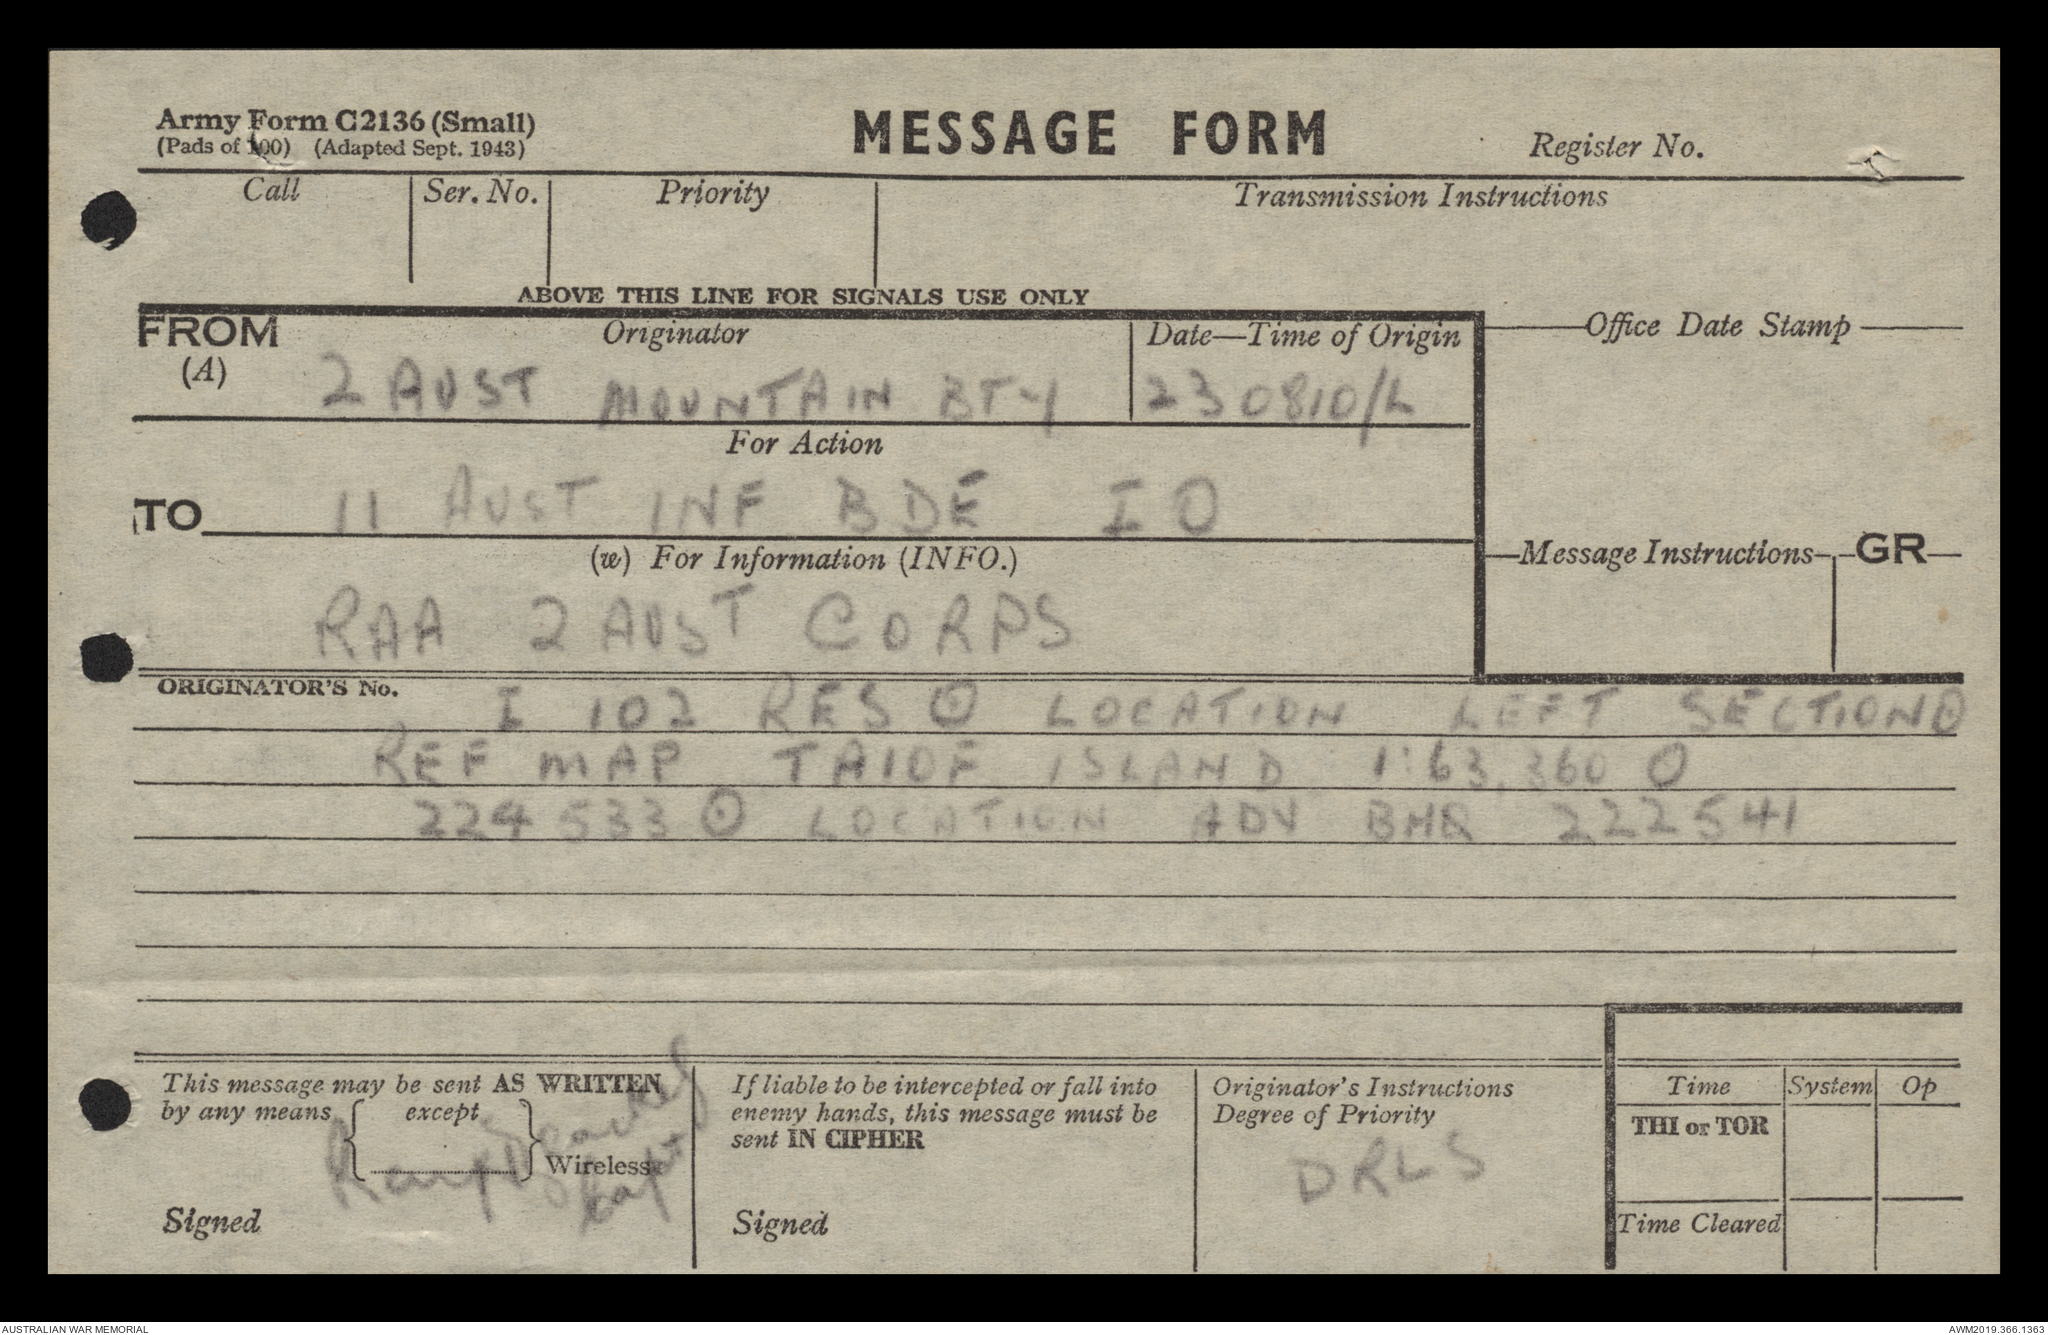 Army Form C2136 (Small)
(Pads of 100) (Adapted Sept. 1943)
MESSAGE FORM
Register No.
Call Ser. No. Priority Transmission Instructions
ABOVE THIS LINE FOR SIGNALS USE ONLY
FROM Originator Date—Time of Origin Office Date Stamp
(A) 2 AUST MOUNTAIN BTY 230810/L
For Action
TO 11 AUST INF BDE IO
(w) For Information (INFO.) Message Instructions GR
RAA 2 AUST CORPS
ORIGINATOR'S No. I 102 RES ⊙ LOCATION LEFT SECTION ⊙
REF MAP TAIOF ISLAND 1:63,360 ⊙
224533 ⊙ LOCATION ADV BHQ 222541
This message may be sent AS WRITTEN
by any means except
Wireless
Capt
Signed
If liable to be intercepted or fall into
enemy hands, this message must be
sent IN CIPHER
Signed
Originator's Instructions
Degree of Priority
DRLS
Time System Op
THI or TOR
Time Cleared
AUSTRALIAN WAR MEMORIAL
AWM2019.366.1363